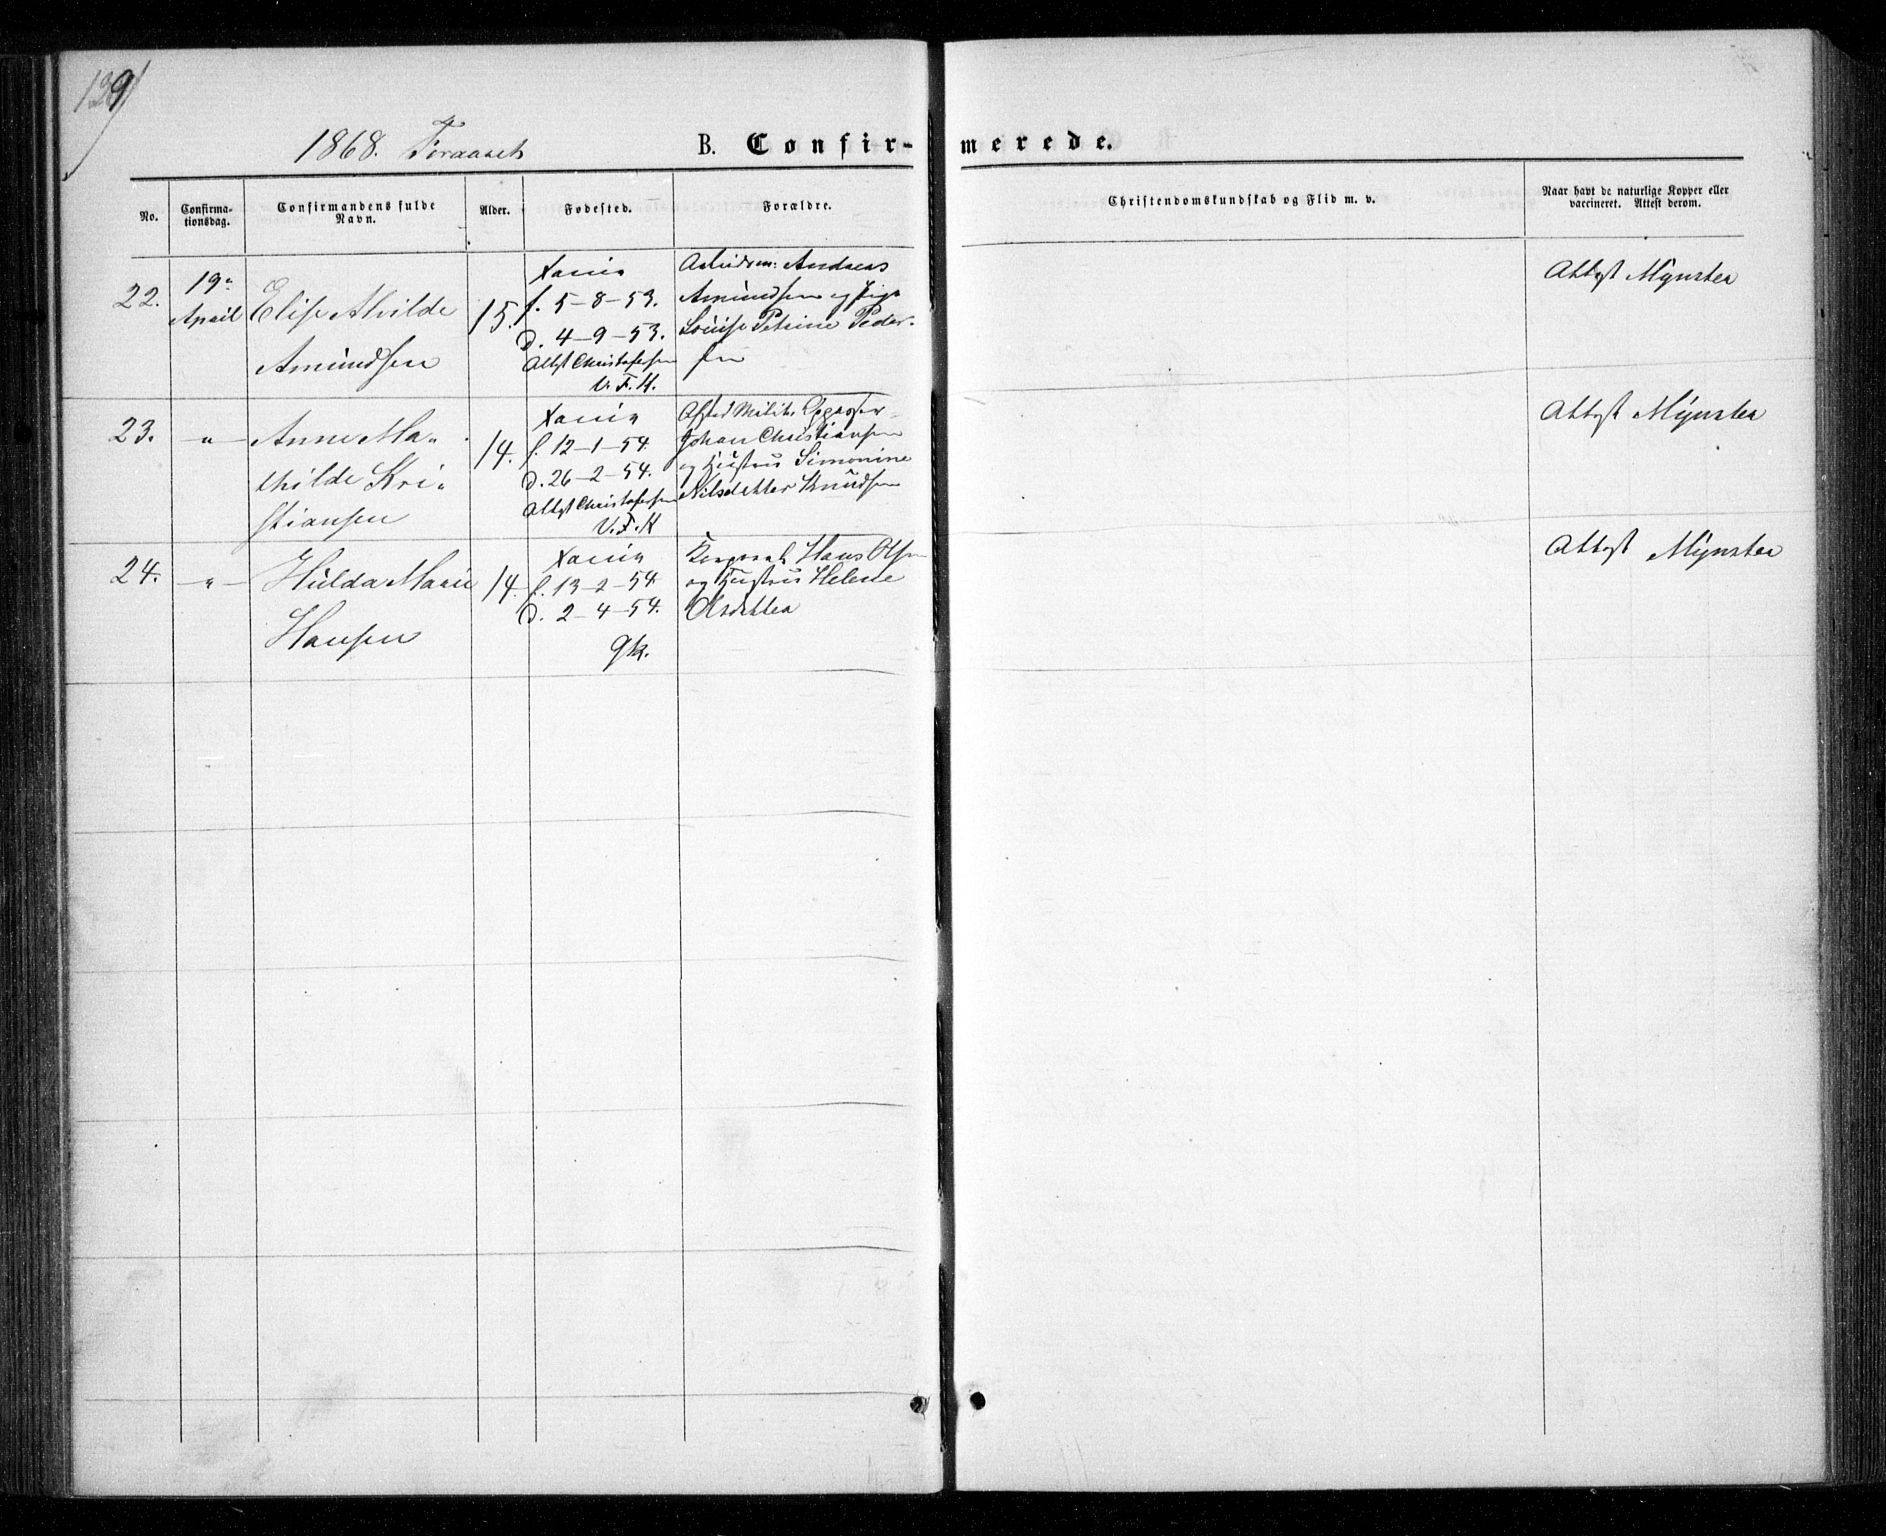 129
1868. Foraaret B. Confir-merede.
No.
Confirma-
tionsdag.
Confirmandens fulde
Navn.
Alder.
Fødested.
Forældre.
Christendomskundskab og Flid m. v.
Naar havt de naturlige Kopper eller
vaccineret. Attest derom.
22.
19de
April
Elise Alvilde
Amundsen
15.
Xania
f. 5-8-53.
D. 4-9-53.
Attest Christofersen
V. F. K.
Arbeidsm: Andreas
Amundsen og Pige
Louise Petrine Peder-
sen
Attest Mynster
23.
-"-
Anne Ma-
thilde Kri-
stiansen
14.
Xania
f. 12-1-54.
D. 26-2-54.
Attest Christofersen
V. F. K
Johan Christiansen
og Hustru Simonine
Nilsdatter Knudsen
Attest Mynster
24.
-"-
Hulda Marie
Hansen
14.
Xania
f. 13-2-54.
D. 2-4-54.
gk.
Hans Olsen
og Hustru Helene
Olsdatter
Attest Mynster